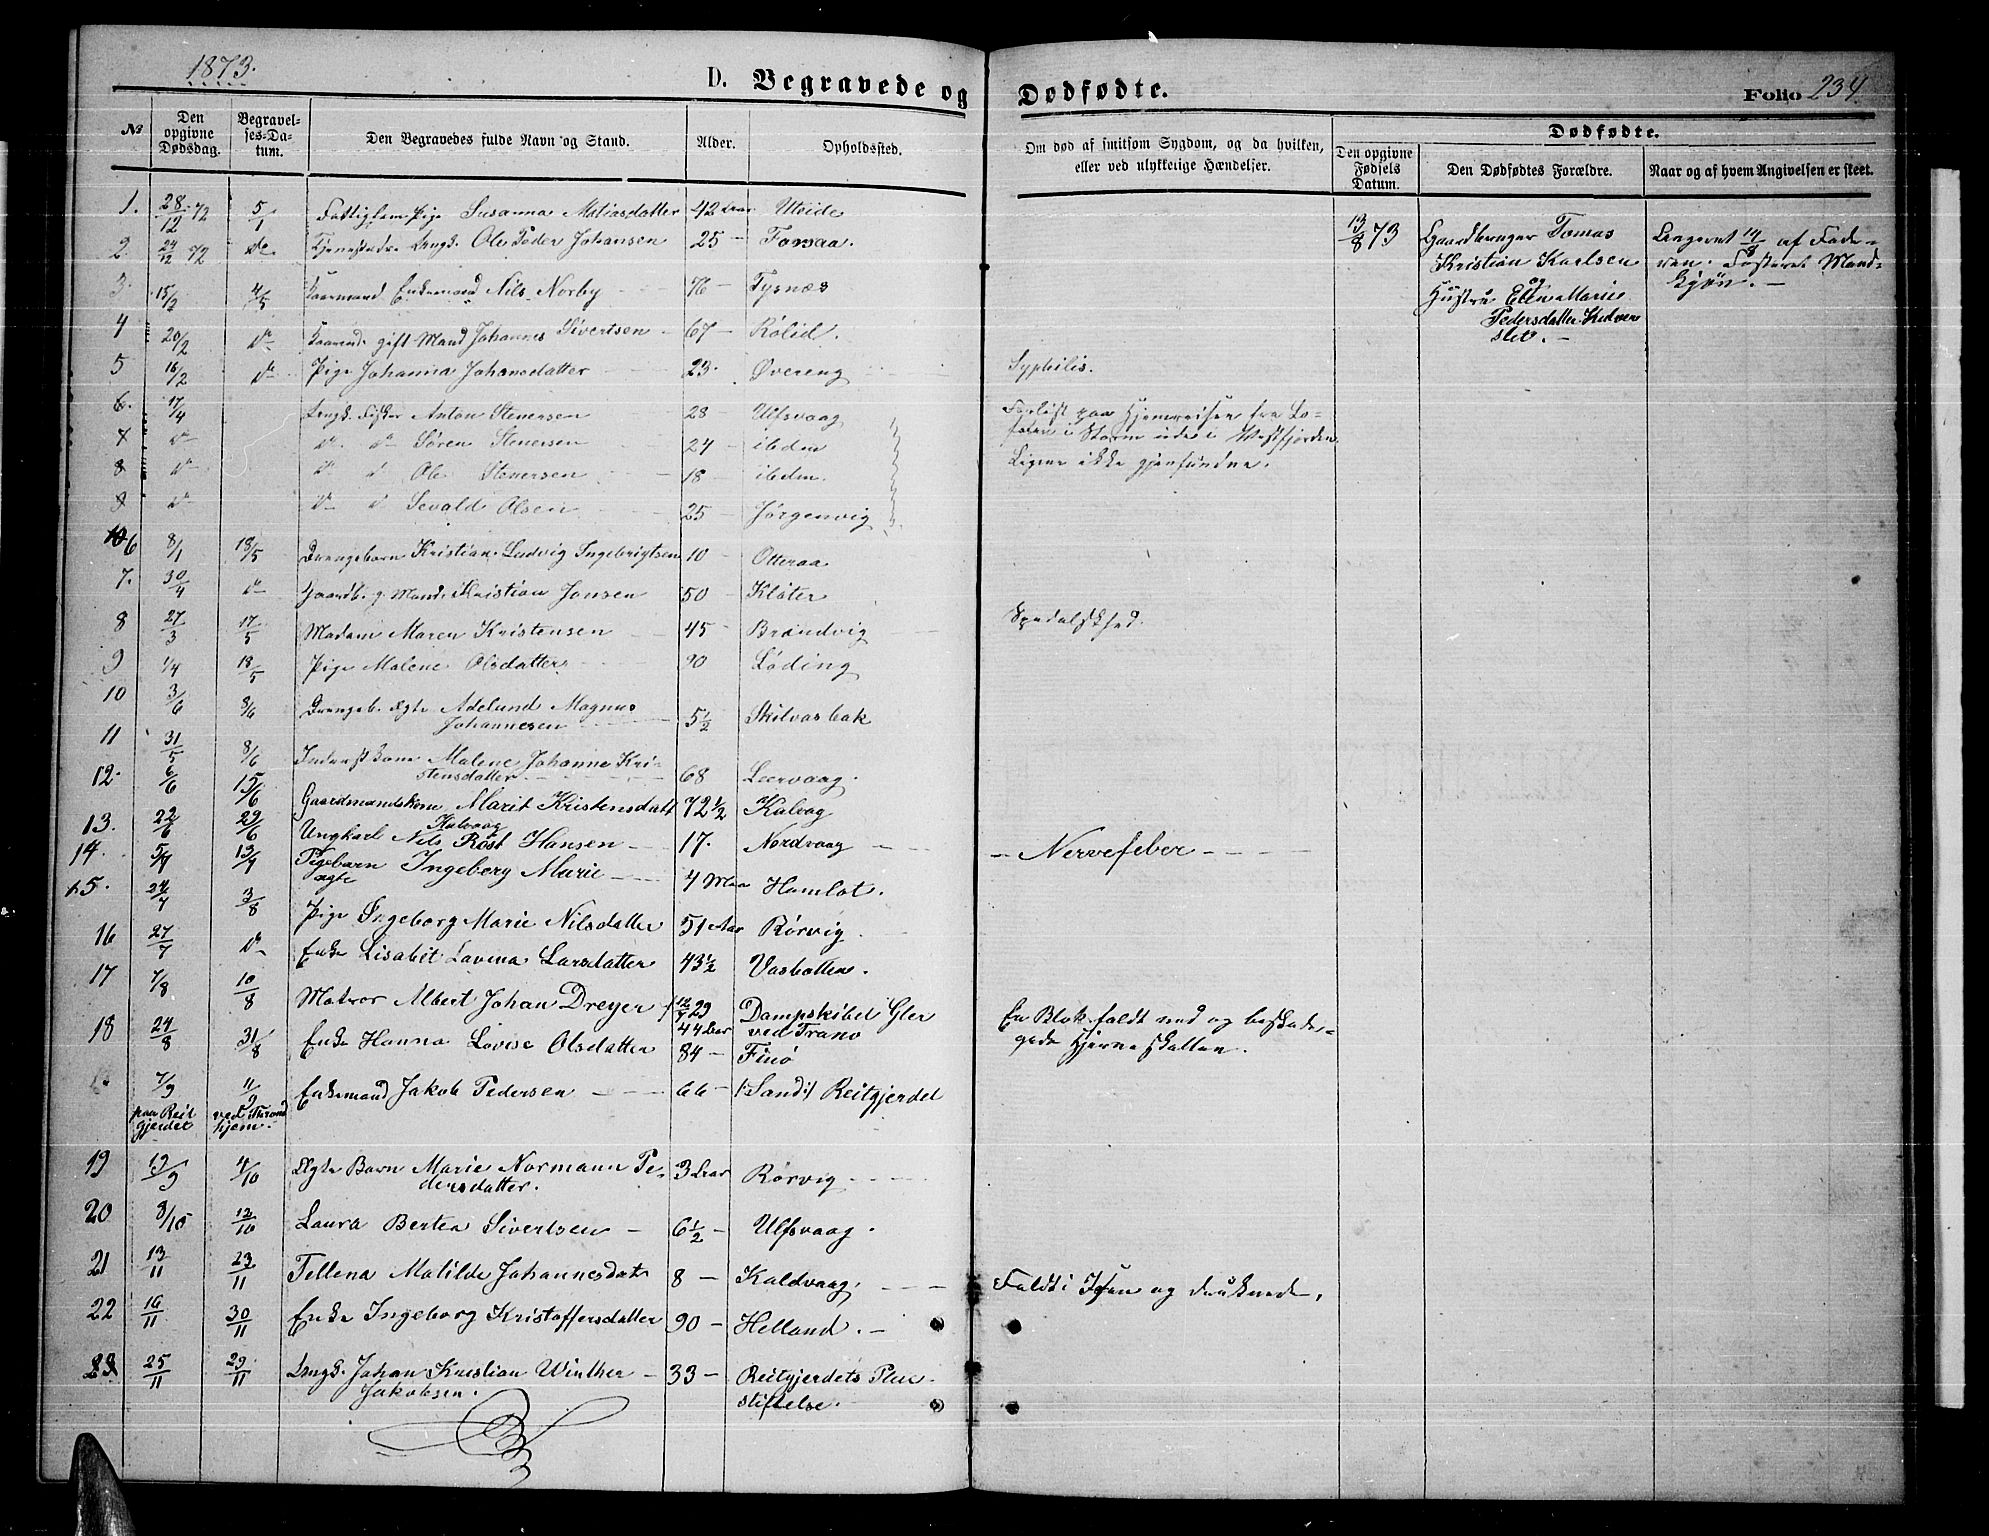 1873.
D. Begravede og
Dødfødte.
Folio 234.
№
Den opgivne Dødsdag.
Begravelses-Datum.
Den Begravedes fulde Navn og Stand.
Alder.
Opholdssted.
Om død af smitsom Sygdom, og da hvilken,
eller ved ulykkelige Hændelser.
Den opgivne Fødsels Datum.
Dødfødte.
Den Dødfødtes Forældre.
Naar og af hvem Angivelsen er skeet.
1. 28/12 72 5/1 Fattiglem Pige Susanna Matiasdatter 42 Aar Uteide
2. 24/12 72 do Tjenestedr. Ungk. Ole Peder Johansen 25 – Forsaa.
3. 15/2 4/5 Kaarmand Enkemand Nils Norby 76 – Tysnæs
4 20/2 do gift Mand Johannes Sivertsen – 67 – Rølid.
5 16/2 do Pige Johanna Johansdatter 23. Øvereng Syphilis.
6. 17/4 Ungk. Fisker Anton Stenersen 28 – Ulfsvaag Forlist paa Hjemreisen fra Lo-
foten i Storm ude i Vestfjorden
7 do do do Søren Stenersen 24 – ibdm
8 do do d Ole Stenersen 18 – ibdm. Ligene ikke gjenfundne.
9 do do d Sevald Olsen 25 – Jørgenvig
6 8/1 18/5 Drengebarn Kristian Ludvig Ingebrigtsen 10 – Otteraa
7. 30/4 do Gaardb. g. Mand Kristian Jonsen 50 – Kloter
8 27/3 17/5 Madam Maren Kristensen 45 – Brandvig Spedalskhed.
9 1/4 18/5 Pige Malene Olsdatter 90 Løding
10 3/6 8/6 Drengeb. ægte Adelund Magnus
Johannesen 5 1/2 Skilvasbak
11 31/5 8/6 Inderstkone Malene Johanne Kri-
stensdatter 68 Leervaag.
12. 6/6 15/6 Gaardmandskone Marit Kristensdatt 72 1/2 Kalvag
Kalvaag
13. 22/6 29/6 Ungkarl Nils Røst Hansen – 17. Nordvaag – Nervefeber –
14. 5/7 13/7 Pigebarn Ingeborg Marie 4 Maa Hamlot.
ægte
15. 24/7 3/8 Pige Ingeborg Marie Nilsdatter 51 Aar Rørvig
16 27/7 do Enke Lisabet Lavina Larsdatter 43 1/2 Vasbotten.
17 7/8 10/8 Matros Albert Johan Dreyer f 12/7 29 Dampskibet Gler
44 Aar ved Tranø
En Blok faldt ned og beskadi-
gede Hjerneskallen.
18 24/8 31/8 Enke Hanna Lovise Olsdatter 84 – Finø
7/9 11/9 Enkemand Jakob Pedersen – 66 – /: Sand :/ Reitgjerdet
paa Reit
gjerdet
ved Thrond
hjem.
19 19/9 4/10 Ægte Barn Marie Normann Pe-
dersdatter. 3 Aar Rørvig
20 8/10 12/10 Laura Bertea Sivertsen – 6 1/2 – Ulfsvaag.
21 13/11 23/11 Tellena Matilde Johannesdat 8 – Kaldvaag Faldt i Isen og druknede.
22 16/11 30/11 Enke Ingeborg Kristoffersdatter 90 – Helland. –
23 25/11 29/11 Ungk. Johan Kristian Winther
Jakobsen. – 33 – Reitgjerdets Pleie
stiftelse.
13/8 73
Gaardbruger Tomas
Kristian Karlsen
og
Hustru Ellen Marie
Pedersdatter Kidver
slet. –
Angivet 14/8 af Fade-
ren. Fosteret Mand-
kjøn. –